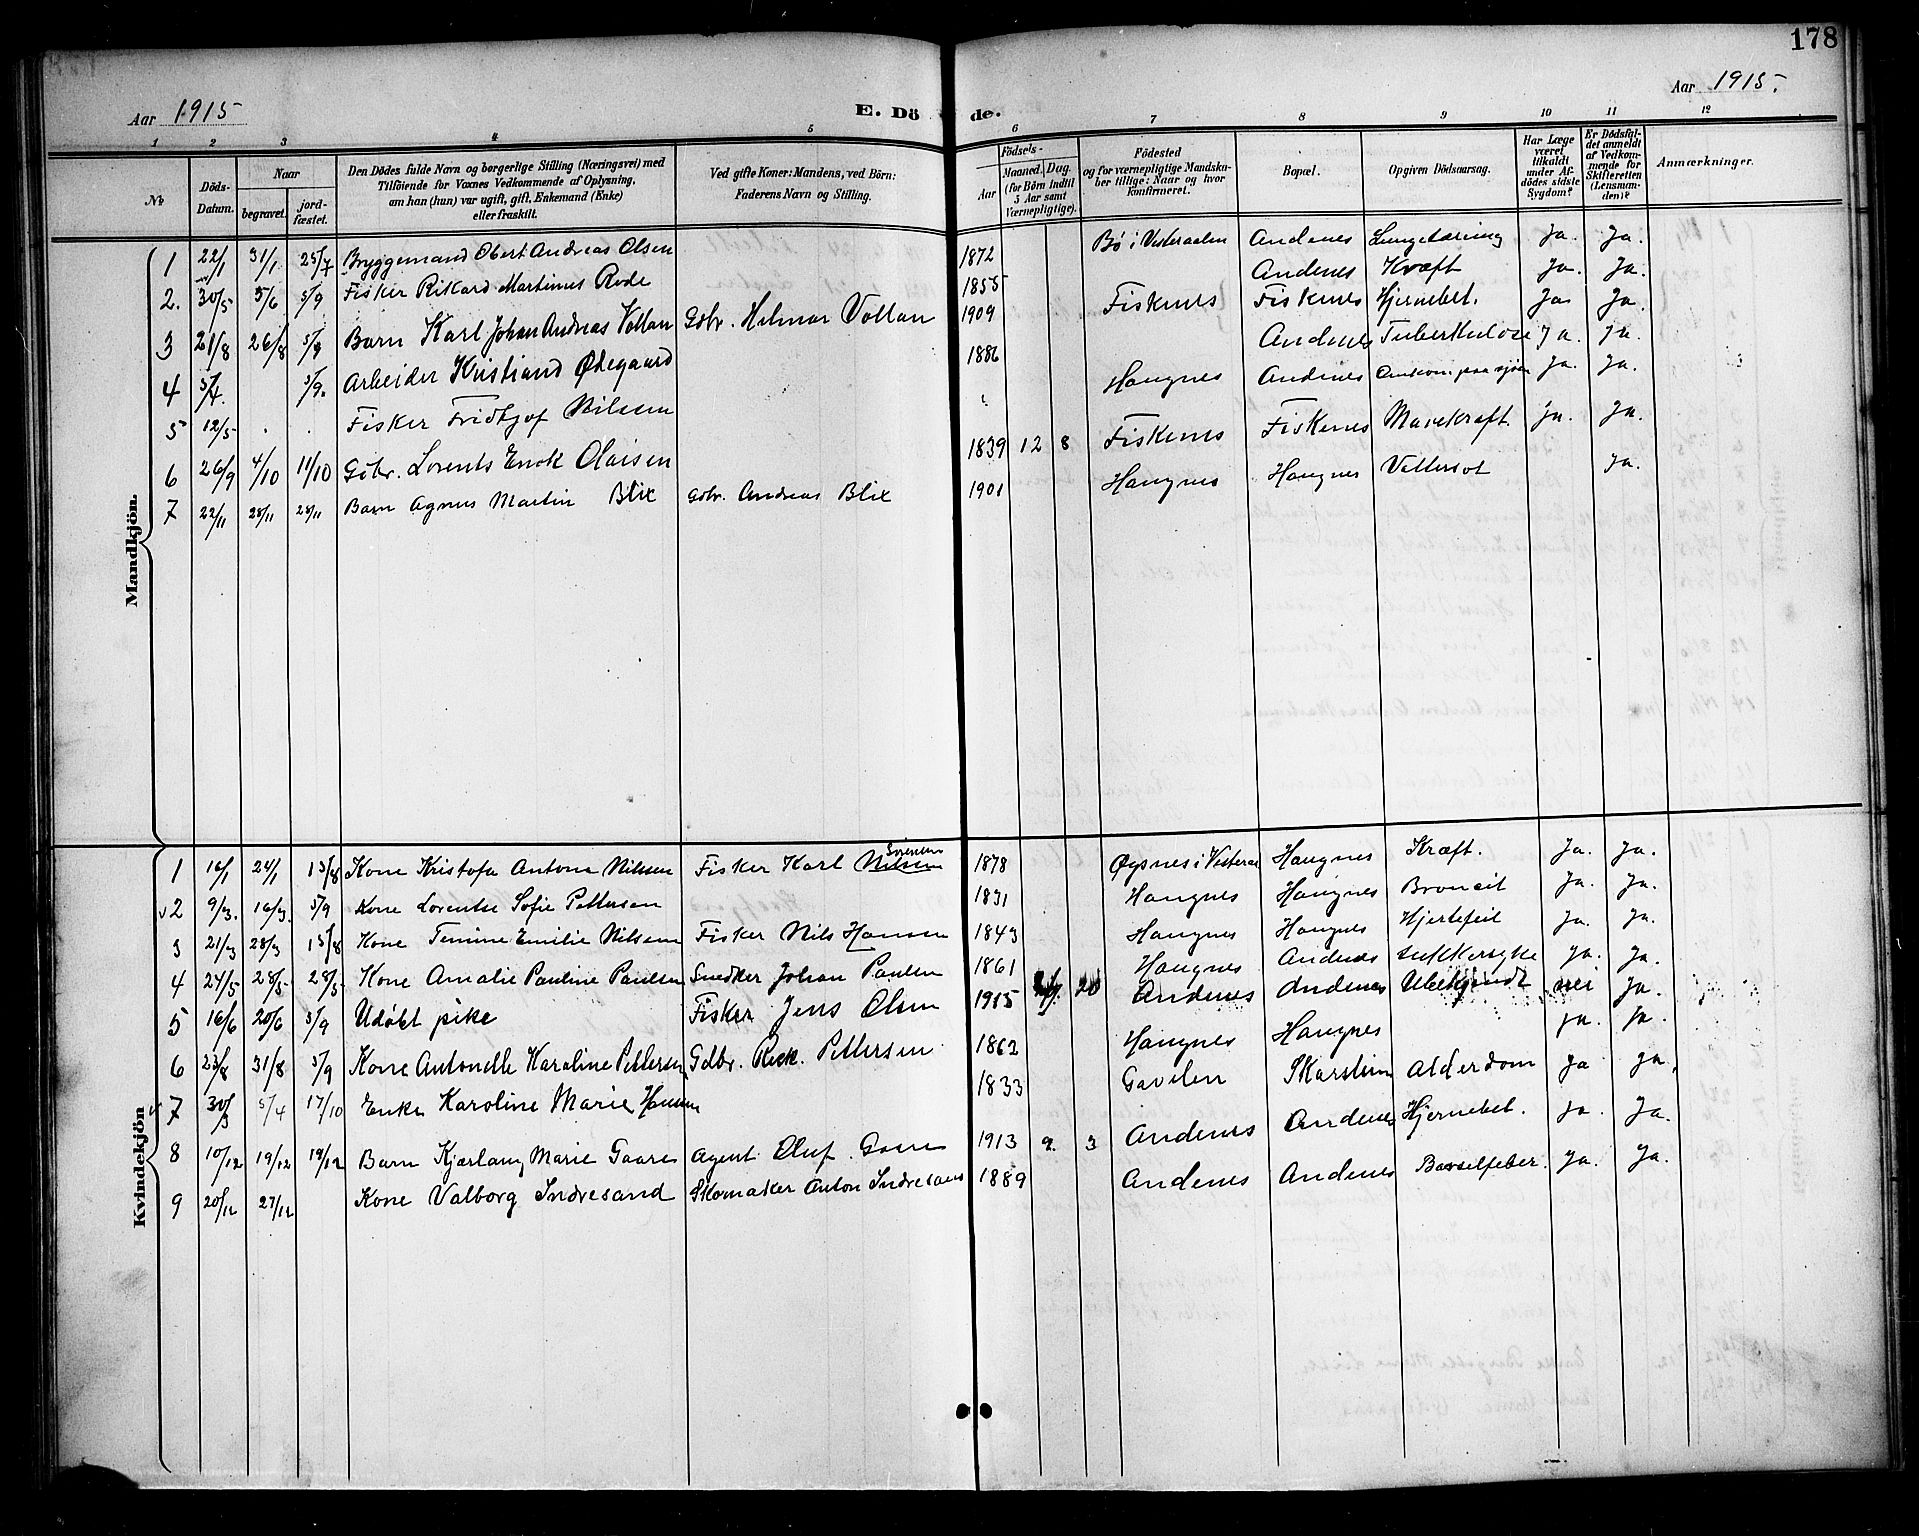 178
Aar 1915
E. Dö de.
Aar 1915.
1 2 3 4 5 6 7 8 9 10 11 12
№
Döds-Datum.
Naar
begravet.
jord-fæstet.
Den Dödes fulde Navn og borgerlige Stilling (Næringsvei) med
Tilföiende for Voxnes Vedkommende af Oplysning,
om han (hun) var ugift, gift, Enkemand (Enke)
eller fraskilt.
Ved gifte Koner: Mandens, ved Börn:
Faderens Navn og Stilling.
Födsels-
Aar
Maaned. Dag.
(for Börn indtil
5 Aar samt
Værnepligtige).
Födested
og for værnepligtige Mandska-
ber tillige: Naar og hvor
konfirmeret.
Bopæl.
Opgiven Dödsaarsag.
Har Læge
været
tilkaldt
under Af-
dödes sidste
Sygdom?
Er Dödsfal-
det anmeldt
af Vedkom-
mende for
Skifteretten
(Lensman-
den)?
Anmærkninger.
Mandkjön.
1 22/1 31/1 25/7 Bryggemand Obert Andreas Olsen 1872 Bø i Vesteraalen Andenes Lungetæring Ja. Ja.
2. 30/5 5/6 5/9 Fisker Rikard Martinus Rode 1855 Andenes Kræft Ja. Ja.
3 21/8 26/8 5/9 Barn Karl Johan Andreas Voltan Gdbr. Hilmar Voltan 1909 Fiskenes Fiskenes Hjernebet. Ja Ja.
4 5/4. 5/9. Arbeider Kristiand Ødegaard 1886 Andenes Tuberkulose Ja. Ja.
5 12/5 . . Fisker Fridtjof Nilsen Haugnes Andenes Omkom paa sjøen Ja. Ja.
6 26/9 4/10 11/10 Gdbr. Lorents Enok Olaisen 1839 12 8 Fiskenes Fiskenes Mavekraft. Ja. Ja.
7 22/11 28/11 28/11 Barn Agnus Martin Blix Gdbr. Andreas Blix 1901 Haugnes Haugnes Vattersot Ja.
Kvindekjön
1 16/1 24/1 15/8 Kone Kristofa Antona Nilssen Fisker Karl Nilsen Sørensen 1878 Øgsnes i Vesteraa Haugnes Kræft. Ja. Ja.
2 9/3. 16/3. 5/9 Kone Lorentse Sofie Pettersen 1831 Haugnes Haugnes Broncit Ja. Ja.
3 21/3 28/3 15/8 Kone Temine Emilie Nilsen Fisker Nils Hansen 1843 Haugnes Haugnes Hjertefeil Ja. Ja.
4 24/5 28/5 28/5 Kone Amalie Pauline Paulsen Snedker Johan Paulsen 1861 Haugnes Andenes Sukkersyke Ja. Ja.
5 16/6 20/6 5/9 Udøbt pike Fisker Jens Olsen 1915 20 Andenes Andenes Ubekjendt nei Ja.
6 23/8 31/8 5/9 Kone Antonette Karoline Pettersen Gdbr. Rick. Pettersen 1862 Haugnes Haugnes Ja. Ja.
7 30/3 5/4 17/10 Enke Karoline Marie Hansen 1833 Gavelen Skarstein Alderdom Ja Ja.
8 10/12 19/12 19/12 Barn Kjærlaug Marie Gaare Agent Oluf Gaare 1913 9. 3 Andenes Andenes Hjernebet. Ja. Ja.
9 20/12 27/12 Kone Valborg Indresand Skomaker Anton Indresand 1889 Andenes Andenes Barselfeber. Ja. Ja.